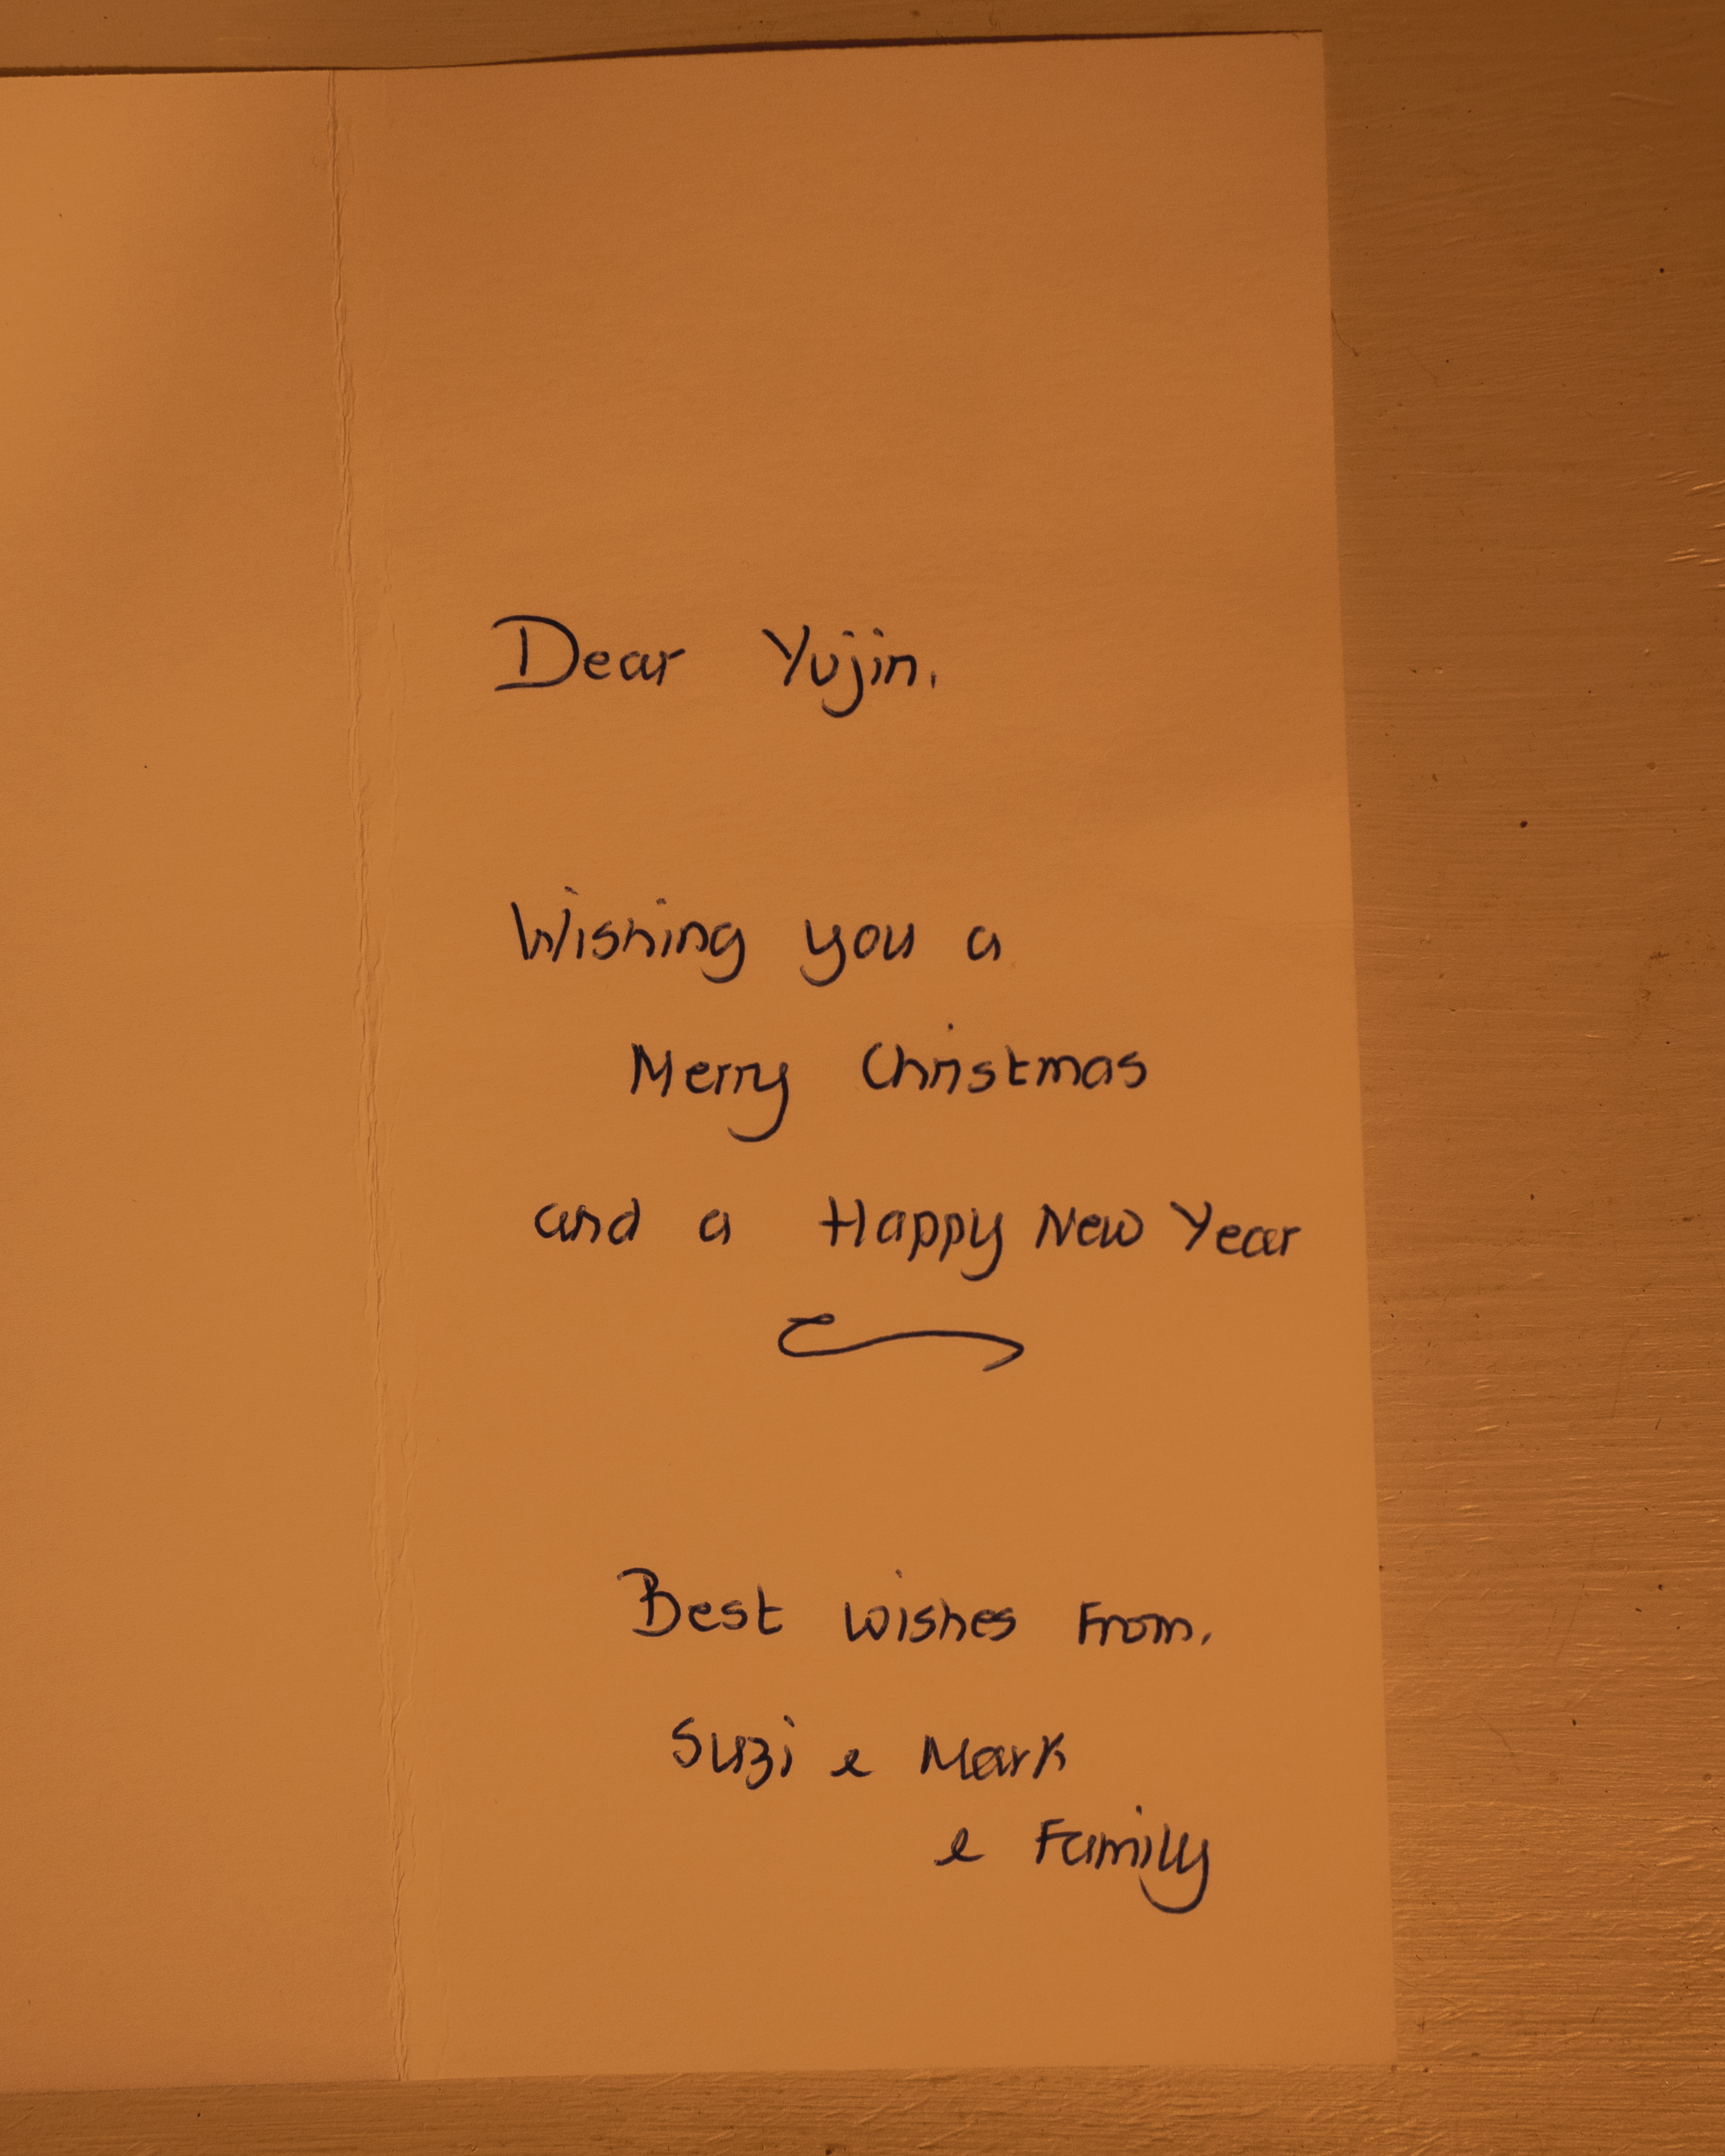 Dear Yujin,
Wishing you a
Merry Christmas
and a Happy New Year
Best wishes From,
Suzi e Mark
e Family